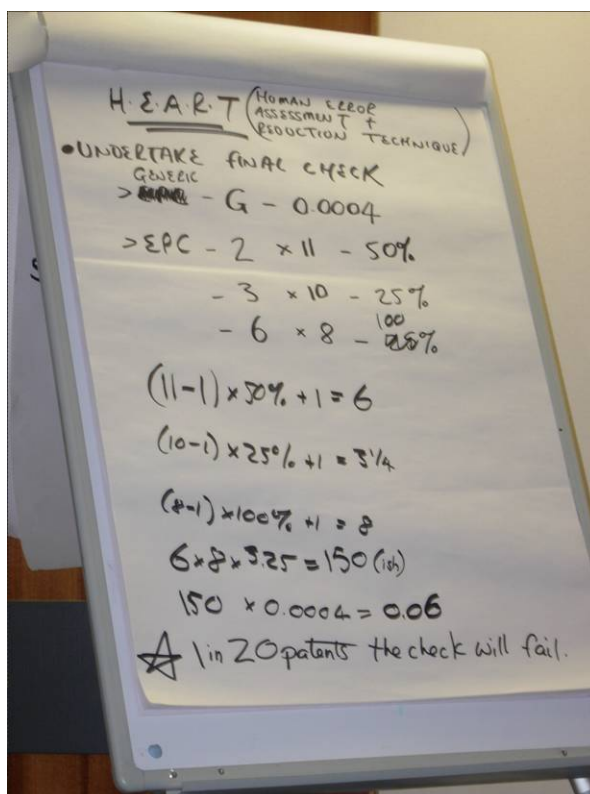 H.E.A.R.T (HUMAN ERROR
ASSESSMENT +
REDUCTION TECHNIQUE)
• UNDERTAKE FINAL CHECK
GENERIC
> - G - 0.0004
> EPC - 2 × 11 - 50%
- 3 × 10 - 25%
- 6 × 8 - 100%
(11-1) × 50% + 1 = 6
(10-1) × 25% + 1 = 3 1/4
(8-1) × 100% + 1 = 8
6 × 8 × 3.25 = 150 (ish)
150 × 0.0004 = 0.06
☆ 1 in 20 patents the check will fail.